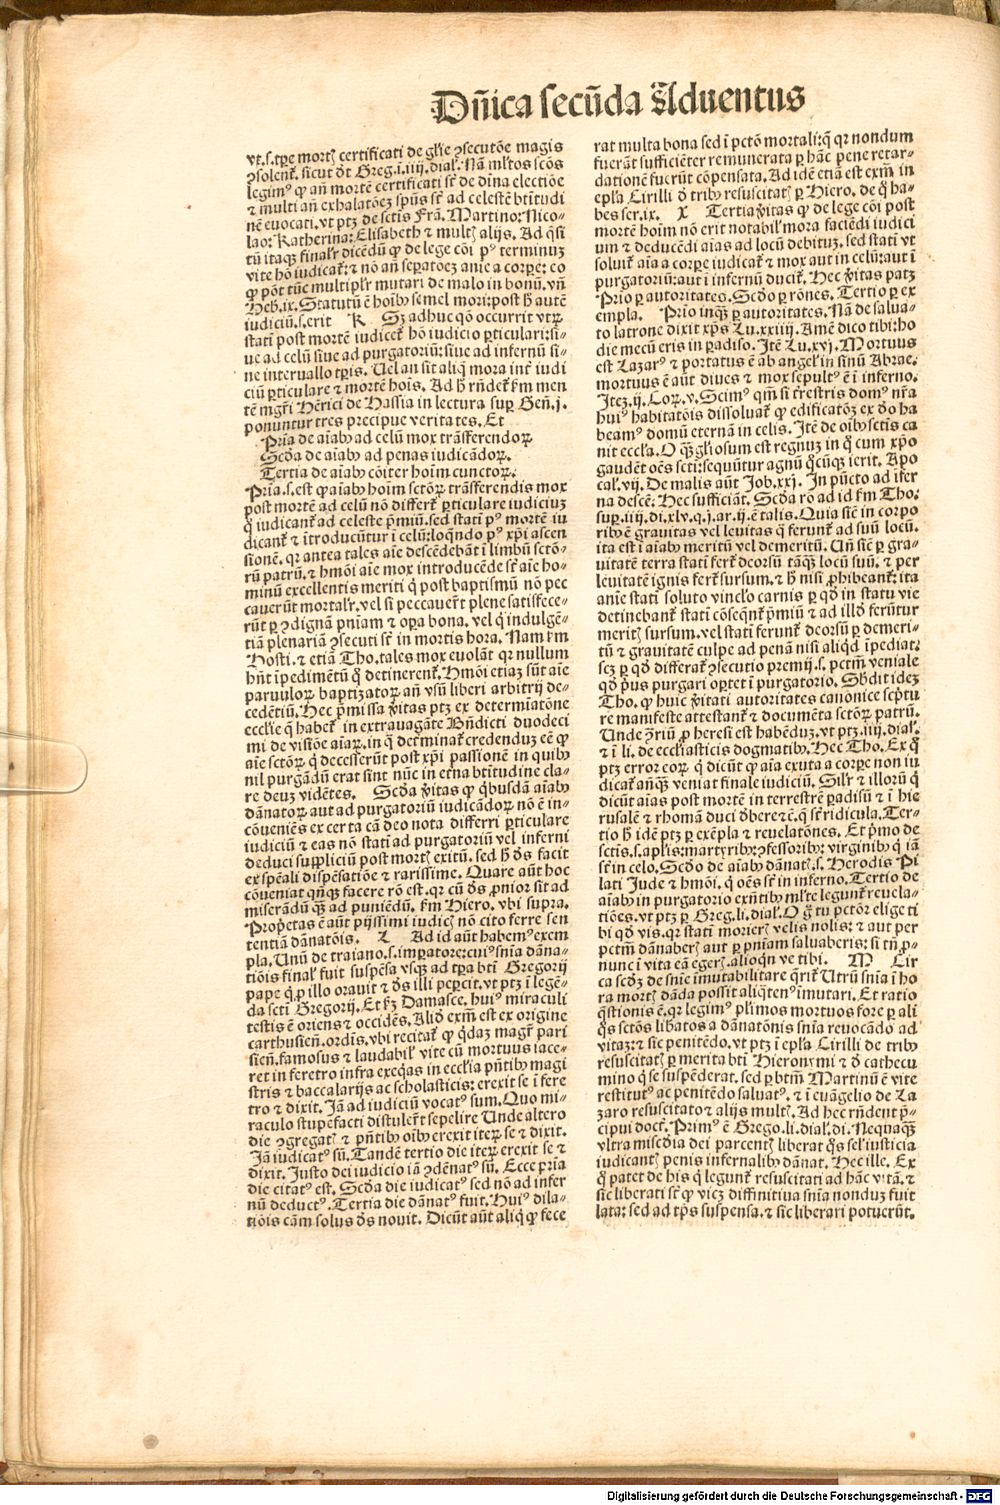 Dñica secūda Aduentus
vt.s.tꝑe mortꝭ certificati de glīe ꝯsecutōe magis
ꝯsolent᷑. sicut dt Greg.i.iiij.dial᷑. Nā ml̄tos scōs
legimꝰ ꝙ añ mortē certificati st̄ de dīna electiōe
⁊ multi añ exhalatōez spūs st̄ ad celestē btītudi
nē euocati. vt ptꝫ de sctis Frā. Martino: Nico⸗
lao: Katherina: Elisabeth ⁊ multꝭ alijs. Ad q̄si
tū itaqꝫ final᷑r dicēdū ꝙ de lege cōi pꝰ terminuꝫ
vite hō iudicat᷑: ⁊ nō añ seꝑatōeꝫ anīe a corꝑe: eo
ꝙ pōt tūc multipl᷑r mutari de malo in bonū. vñ
Heb.ix. Statutū ē hoībꝫ semel mori: post h̄ autē
iudiciū.s.erit K Sꝫ adhuc qō occurrit vtꝝ
statī post mortē iudicet᷑ hō iudicio ꝑticulari: si⸗
ue ad celū siue ad purgatoriū: siue ad infernū si⸗
ne interuallo tꝑis. Uel an sit aliq̄ mora int̄ iudi
ciū ꝑticulare ⁊ mortē hoīs. Ad h̄ rñdet᷑ ẜm men
tē mgr̄i Hērici de Hassia in lectura suꝑ Geñ.j.
ponuntur tres precipue veritates. Et
Pria de aīabꝫ ad celū mox trāsferendoꝝ.
Scd̄a de aīabꝫ ad penas iudicādoꝝ.
Tertia de aīabꝫ cōiter hoīm cunctoꝝ.
Pria.s.est ꝙ aīabꝫ hoīm sctōꝝ trāsferendis mox
post mortē ad celū nō differt᷑ ꝑticulare iudiciuꝫ
q̄ iudicant᷑ ad celeste p̄miū. sed statī pꝰ mortē iu
dicant᷑ ⁊ ītroducūtur ī celū: loqn̄do pꝰ xp̄i ascen
sionē. qꝛ antea tales aīe descēdebāt ī limbū sctō⸗
rū patrū. ⁊ hmōi aīe mox introducēde st̄ aīe ho⸗
minū excellentis meriti q̄ post baptismū nō pec
cauerūt mortal᷑r. vel si peccauer̄t plene satisfece⸗
rūt ꝑ ꝯdignā pn̄iam ⁊ oꝑa bona. vel q̄ indulgē⸗
tiā plenariā ꝯsecuti st̄ in mortis hora. Nam ẜm
Hosti. ⁊ etiā Tho. tales mox euolāt qꝛ nullum
hn̄t īpedimētū q̄ detinerent᷑. Hmōi etiaꝫ sūt aīe
paruuloꝝ baptizatoꝝ añ vsū liberi arbitrij de⸗
cedētiū. Hec p̄missa v̄itas ptꝫ ex determīatōne
ecclīe q̄ habet᷑ in extrauagāte Bn̄dicti duodeci
mi de visiōe aīaꝝ. in q̄ det̄minat᷑ credenduꝫ eē ꝙ
aīe sctōꝝ q̄ decesserūt post xp̄i passionē in quibꝫ
nil purgādū erat sint nūc in etna btītudine cla⸗
re deuꝫ vidētes. Scd̄a v̄itas ꝙ q̄busdā aīabꝫ
dānatoꝝ aut ad purgatoriū iudicādoꝝ nō ē in⸗
cōueniēs ex certa cā deo nota differri ꝑticulare
iudiciū ⁊ eas nō statī ad purgatoriū vel inferni
deduci suppliciū post mortꝭ exitū. sed h̄ ds̄ facit
ex spēali dispēsatiōe ⁊ rarissime. Quare aūt hoc
cōueniat qn̄qꝫ facere rō est. qꝛ cū ds̄ ꝓnior sit ad
miserādū qꝫ̄ ad puniēdū. ẜm Hiero. vbi supra.
Prop̄etas ē aūt pijssimi iudicꝭ nō cito ferre sen
tentiā dānatōis. L Ad id aūt habemꝰ exem
pla. Unū de traiano.s.imꝑatore: cuiꝰ snīa dāna⸗
tiōis final᷑ fuit suspēsa vsqꝫ ad tꝑa bti Gregorij
pape q̄.ꝓ illo orauit ⁊ ds̄ illi peꝑcit. vt ptꝫ ī legē⸗
da scti Gregorij. Et ẜꝫ Damasce. huiꝰ miraculi
testis ē oriens ⁊ occidēs. Alid̄ exm̄ est ex origine
carthusieñ. ordīs. vbi recitat᷑ ꝙ q̄daꝫ magr̄ pari
sieñ. famosus ⁊ laudabil᷑ vite cū mortuus iace⸗
ret in feretro infra exeq̄as in ecclīa pn̄tibꝫ magi
stris ⁊ baccalarijs ac scholasticis: erexit se ī fere
tro ⁊ dixit. Jā ad iudiciū vocatꝰ sum. Quo mi⸗
raculo stupefacti distuler̄t sepelire Unde altero
die ꝯgregatꝭ ⁊ pn̄tibꝫ oībꝫ erexit iteꝝ se ⁊ dixit.
Jā iudicatꝰ sū. Tandē tertio die iteꝝ erexit se ⁊
dixit. Justo dei iudicio iā ꝯdēnatꝰ sū. Ecce pria
die citatꝰ est. Scd̄a die iudicatꝰ sed nō ad infer
nū deductꝰ. Tertia die dānatꝰ fuit. Huiꝰ dila⸗
tiōis cām solus ds̄ nouit. Dicūt aūt aliq̄ ꝙ fece
rat multa bona sed ī pctō mortali: q̄ qꝛ nondum
fuerāt sufficiēter remunerata ꝑ hāc pene retar⸗
dationē fuerūt cōpensata. Ad idē etiā est exm̄ in
epl̄a Cirilli d̄ tribꝫ resuscitatꝭ ꝑ Hiero. de q̄ ha⸗
bes ser.ix. X Tertia v̄itas ꝙ de lege cōi post
mortē hoīm nō erit notabil᷑ mora faciēdi iudici
um ⁊ deducēdi aīas ad locū debituꝫ. sed statī vt
soluit᷑ aīa a corꝑe iudicat᷑ ⁊ mox aut in celū: aut ī
purgatoriū: aut ī infernū ducit᷑. Hec v̄itas patꝫ
Prio ꝑ autoritates. Scd̄o ꝑ rōnes. Tertio ꝑ ex
empla. Prio inqꝫ ꝑ autoritates. Nā de salua⸗
to latrone dixit xp̄s Lu.xxiij. Amē dico tibi: ho
die mecū eris in ꝑadiso. Itē Lu.xvj. Mortuus
est Lazarꝰ ⁊ portatus ē ab angel᷑ in sinū Abrae.
mortuus ē aūt diues ⁊ mox sepultꝰ ē ī inferno.
Iteꝫ.ij. Cor.v. Scimꝰ qm̄ si t̄restris domꝰ nr̄a
huiꝰ habitatōis dissoluat᷑ ꝙ edificatōeꝫ ex d̄o ha
beamꝰ domū eternā in celis. Itē de oībꝫ sctis ca
nit eccl̄a. O qꝫ̄ gl̄iosum est regnuꝫ in q̄ cum xp̄o
gaudēt oēs scti: sequūtur agnū q̄cūqꝫ ierit. Apo
cal᷑.vij. De malis aūt Job.xxj. In pūcto ad ifer
na descē. Hec sufficiāt. Scd̄o rō ad id ẜm Tho.
suꝑ.iiij.di.xlv.q.j.ar.ij. ē talis. Quia siē in corpo
ribꝫ ē grauitas vel leuitas q̄ ferunt᷑ ad suū locū.
ita est ī aīabꝫ meritū vel demeritū. Uñ siē ꝑ gra⸗
uitatē terra statī fert᷑ deorsū tāqꝫ̄ locū suū. ⁊ per
leuitatē ignis fert᷑ sursum. ⁊ h̄ nisi ꝓhibeant᷑: ita
anīe statī soluto vincl̄o carnis ꝑ qd̄ in statu vie
detinebant᷑ statī cōseqn̄t᷑ p̄miū ⁊ ad illd̄ ferūtur
meritꝭ sursum. vel statī ferunt᷑ deorsū ꝑ demeri⸗
tū ⁊ grauitatē culpe ad penā nisi aliqd̄ īpediat:
scꝫ ꝑ qd̄ differat᷑ ꝯsecutio premij.s. pctm̄ veniale
qd̄ pus purgari oꝑtet ī purgatorio. Sb̄dit ideꝫ
Tho. ꝙ huic v̄itati autoritates canonice scptu
re manifeste attestant᷑ ⁊ documēta sctōꝝ patrū.
Unde ꝯriū ꝓ heresi est habēduꝫ. vt ptꝫ.iiij.dial᷑.
⁊ ī li. de ecclīasticis dogmatibꝫ. Hec Tho. Ex q̄
ptꝫ error eoꝝ q̄ dicūt ꝙ aīa exuta a corꝑe non iu
dicat᷑ añqꝫ̄ veniat finale iudiciū. Sil᷑r ⁊ illorū q̄
dicūt aīas post mortē in terrestrē ꝑadisū ⁊ ī hie
rusalē ⁊ rhomā duci d̄bere ⁊c̄. q̄ st̄ ridicula. Ter⸗
tio h̄ idē ptꝫ ꝑ exēpla ⁊ reuelatōnes. Et p̄mo de
sctis.s.apl̄is: martyribꝫ: ꝯfessoribꝫ: virginibꝫ q̄ iā
st̄ in celo. Scd̄o de aīabꝫ dānatꝭ.s. Herodis Pi
lati Jude ⁊ hmōi. q̄ oēs st̄ in inferno. Tertio de
aīabꝫ in purgatorio exn̄tibꝫ ml̄te legunt᷑ reuela⸗
tiōes. vt ptꝫ ꝑ Greg.li.dial᷑. O g̊ tu pctōr elige ti
bi qd̄ vis. qꝛ statī morierꝭ velis nolis: ⁊ aut per
pctm̄ dānaberꝭ aut ꝑ pn̄iam saluaberis: si tn̄ ꝓ⸗
nunc ī vita eā egerꝭ. alioqn̄ ve tibi. M Cir
ca scd̄ꝫ de snīe īmutabilitare q̄rit᷑ Utrū snīa ī ho
ra mortꝭ dāda possit aliq̄tenꝰ īmutari. Et ratio
q̄stionis ē. qꝛ legimꝰ pl̄imos mortuos fore ꝑ ali
q̄s sctōs lib̄atos a dānatōnis snīa reuocādo ad
vitaꝫ: ⁊ sic penitēdo. vt ptꝫ ī epl̄a Cirilli de tribꝫ
resuscitatꝭ ꝑ merita bti Hieronymi ⁊ d̄ cathecu
mino q̄ se suspēderat. sed ꝑ btm̄ Martinū ē vite
restitutꝰ ac penitēdo saluatꝰ. ⁊ ī euāgelio de La
zaro resuscitato ⁊ alijs multꝭ. Ad hec rn̄dent p̄⸗
cipui doct᷑. Primꝰ ē Grego.li.dial᷑.di. Nequaqꝫ̄
vltra miscd̄ia dei parcentꝭ liberat q̄s sel᷑ iusticia
iudicantꝭ penis infernalibꝫ dānat. Hec ille. Ex
q̄ patet de his q̄ legunt᷑ resuscitati ad hāc vitā. ⁊
sic liberati st̄ ꝙ vicꝫ diffinitiua snīa nonduꝫ fuit
lata: sed ad tp̄s suspensa. ⁊ sic liberari potuerūt.
Digitalisierung gefördert durch die Deutsche Forschungsgemeinschaft - DFG